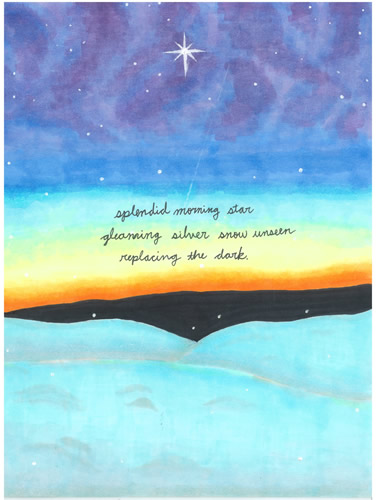 splendid morning star
gleaming silver snow unseen
replacing the dark.